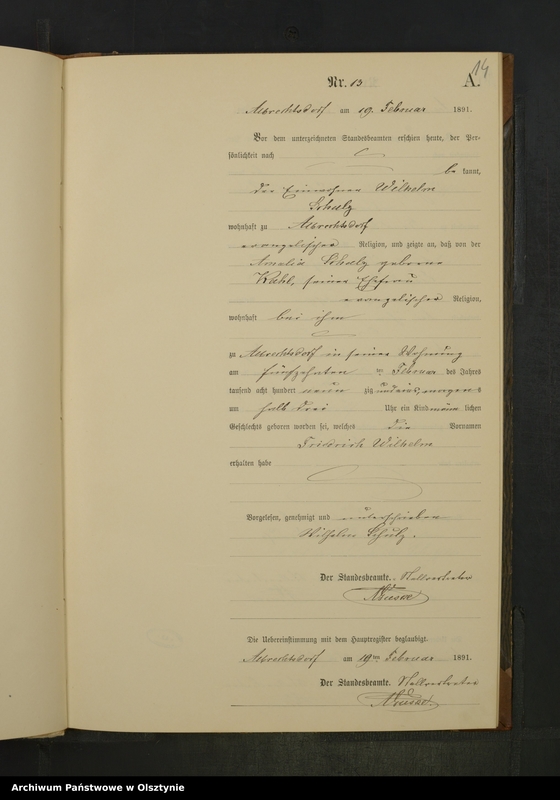 14
Nr. 13 A.
Albrechtsdorf am 19. Februar 1891.
Vor dem unterzeichneten Standesbeamten erschien heute, der Per-
sönlichkeit nach
be kannt,
der Einwohner Wilhelm
Schulz
wohnhaft zu Albrechtsdorf
evangelischer Religion, und zeigte an, daß von der
Amalie Schulz geborene
Kahl, seiner Ehefrau
evangelischer Religion,
wohnhaft bei ihm
zu Albrechtsdorf in seiner Wohnung
am fünfzehnten ten Februar des Jahres
tausend acht hundert neun zig und eins, morgens
um halb drei Uhr ein Kind männ lichen
Geschlechts geboren worden sei, welches die Vornamen
Friedrich Wilhelm
erhalten habe
Vorgelesen, genehmigt und unterschrieben
Wilhelm Schulz.
Der Standesbeamte. Stellvertreter
Die Uebereinstimmung mit dem Hauptregister beglaubigt.
Albrechtsdorf am 19ten Februar 1891.
Der Standesbeamte. Stellvertreter
Archiwum Państwowe w Olsztynie